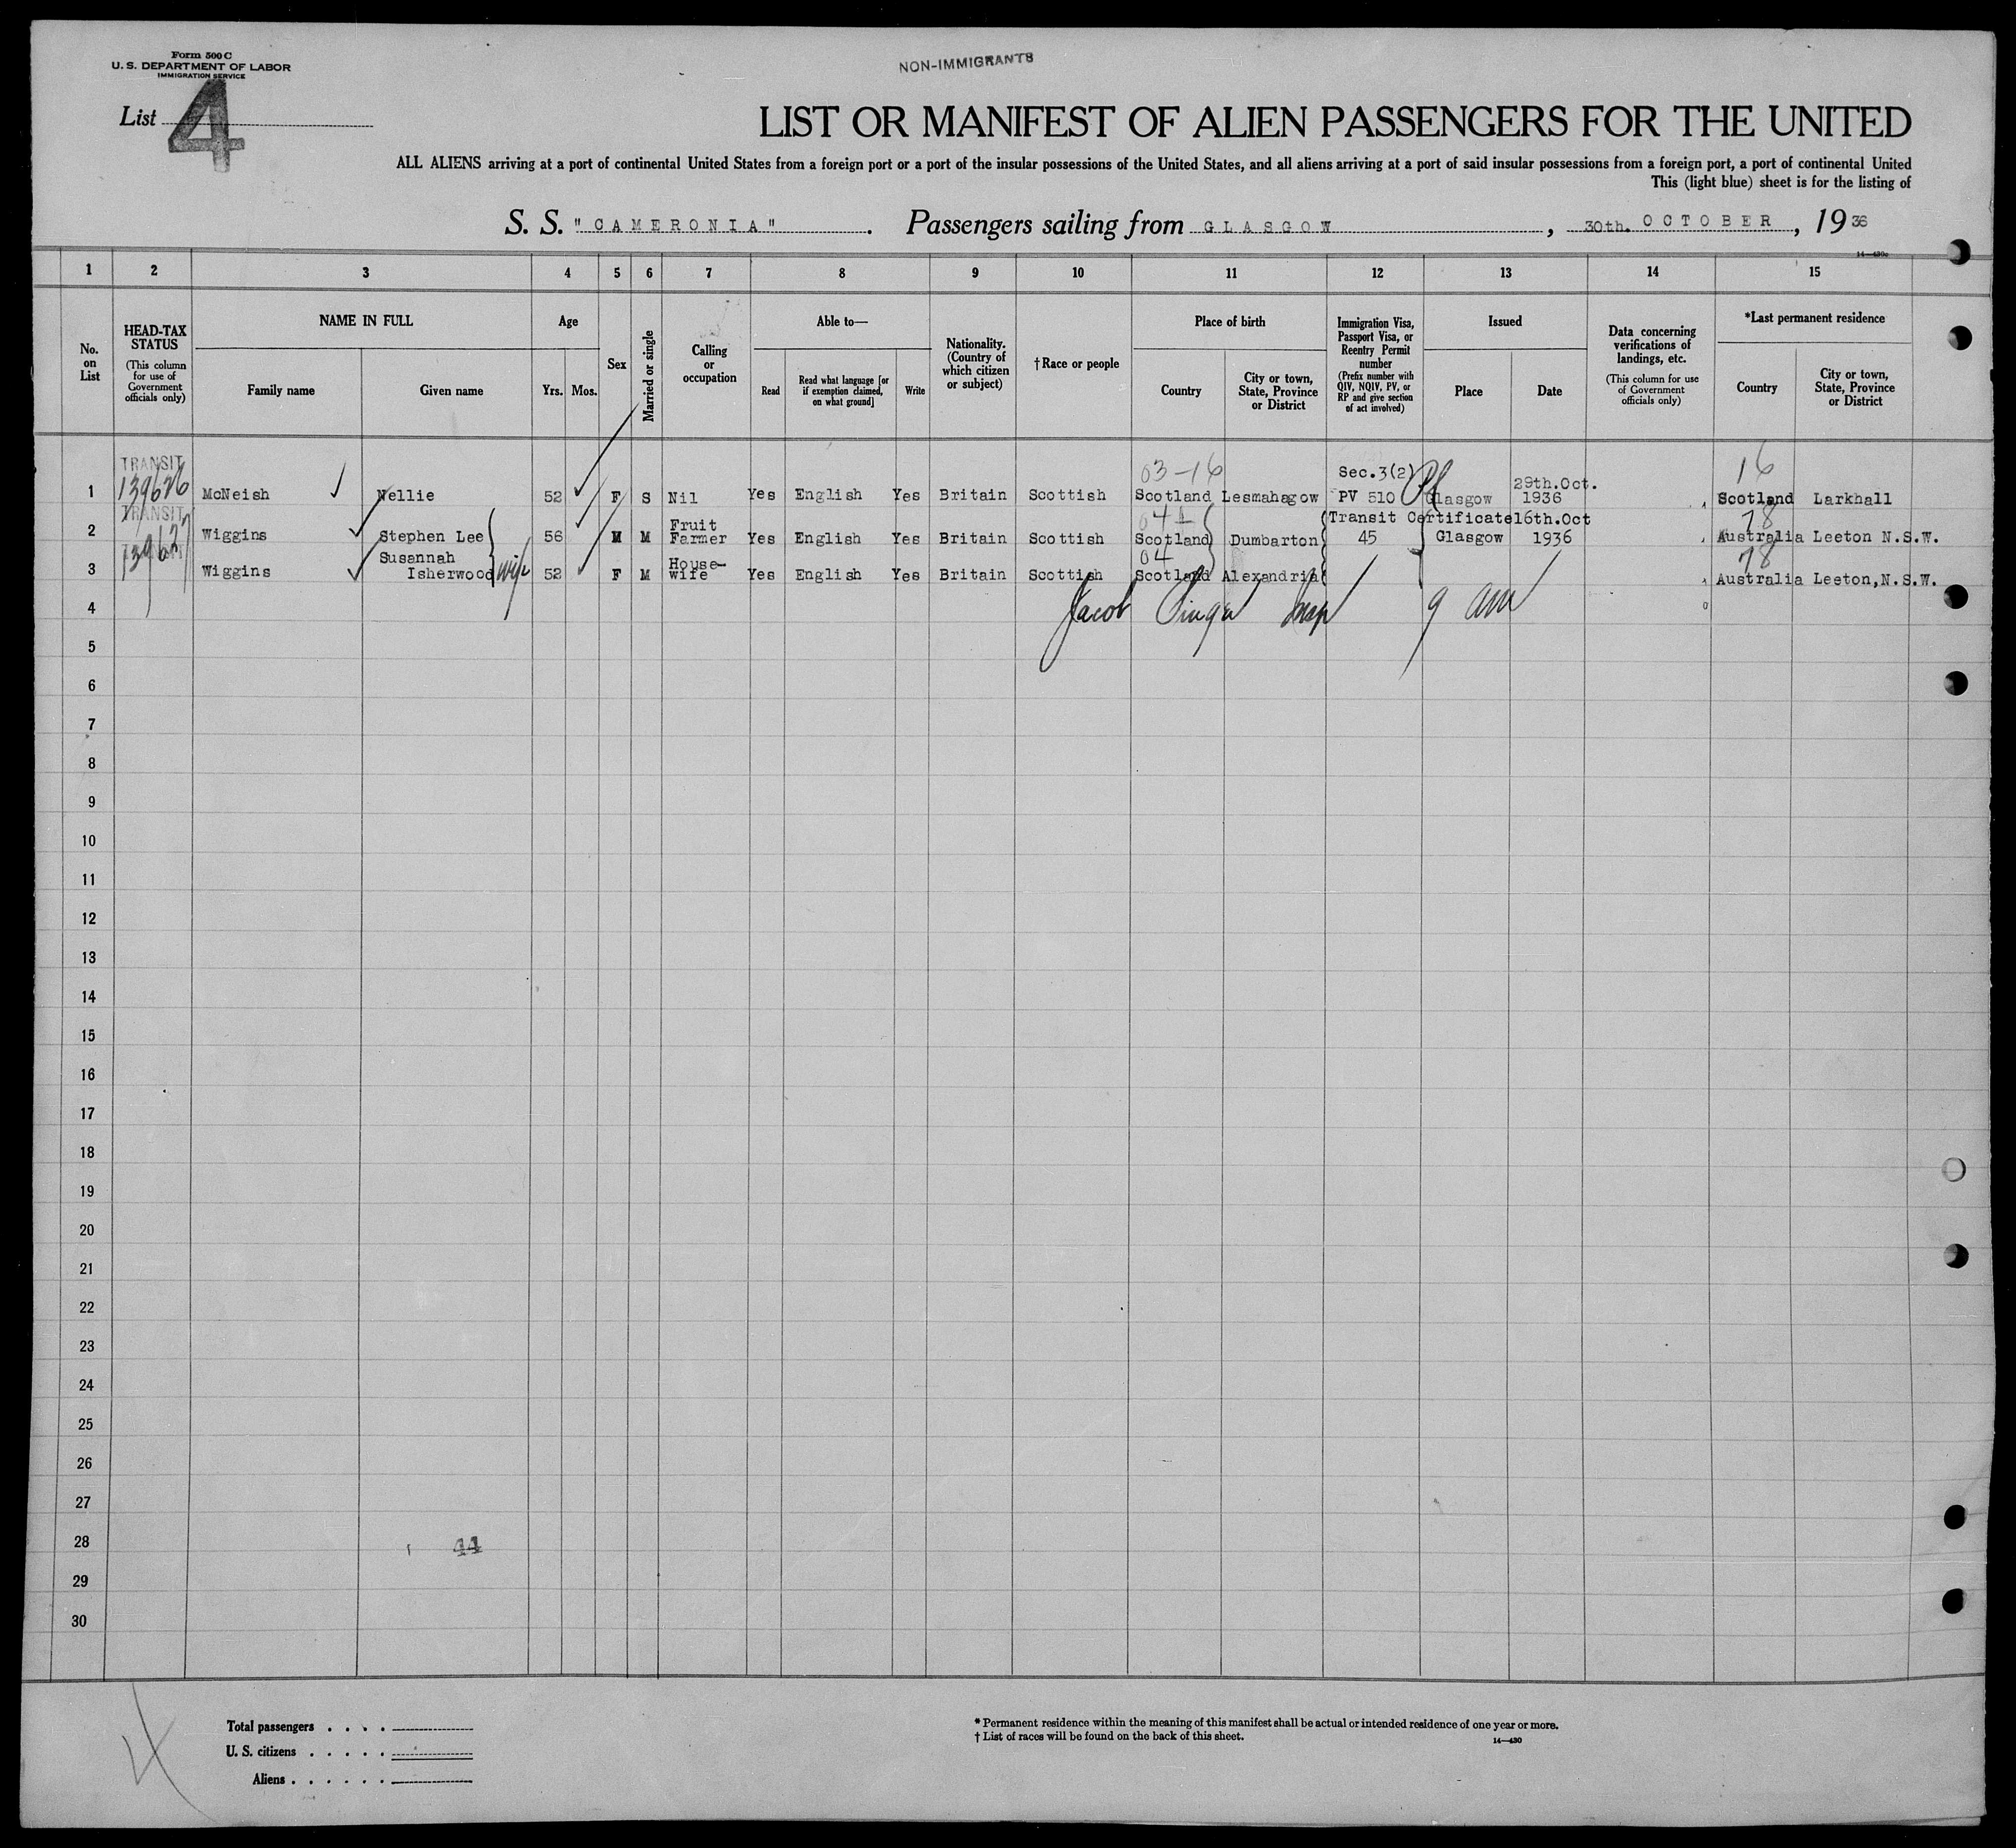 Form 500 C
U. S. DEPARTMENT OF LABOR
IMMIGRATION SERVICE
NON-IMMIGRANTS
List 4
LIST OR MANIFEST OF ALIEN PASSENGERS FOR THE UNITED
ALL ALIENS arriving at a port of continental United States from a foreign port or a port of the insular possessions of the United States, and all aliens arriving at a port of said insular possessions from a foreign port, a port of continental United
This (light blue) sheet is for the listing of
S. S. "CAMERONIA". Passengers sailing from GLASGOW, 30th. OCTOBER, 1936
14—430c
1 2 3 4 5 6 7 8 9 10 11 12 13 14 15
No. on List
HEAD-TAX STATUS
(This column for use of Government officials only)
NAME IN FULL
Family name
Given name
Age
Yrs. Mos.
Sex
Married or single
Calling or occupation
Able to—
Read
Read what language [or if exemption claimed, on what ground]
Write
Nationality. (Country of which citizen or subject)
† Race or people
Place of birth
Country
City or town, State, Province or District
Immigration Visa, Passport Visa, or Reentry Permit number
(Prefix number with QIV, NQIV, PV, or RP and give section of act involved)
Issued
Place
Date
Data concerning verifications of landings, etc.
(This column for use of Government officials only)
*Last permanent residence
Country
City or town, State, Province or District
TRANSIT 03-16 Sec.3(2) 29th.Oct. 16
1 139626 McNeish Nellie 52 F S Nil Yes English Yes Britain Scottish Scotland Lesmahagow PV 510 Glasgow 1936 Scotland Larkhall
TRANSIT Fruit 04 Transit Certificate 16th.Oct 78
2 139627 Wiggins Stephen Lee 56 M M Farmer Yes English Yes Britain Scottish Scotland Dumbarton 45 Glasgow 1936 Australia Leeton N.S.W.
Susannah House- 04 78
3 Wiggins Isherwood wife 52 F M wife Yes English Yes Britain Scottish Scotland Alexandria Australia Leeton, N.S.W.
4 Jacob Singer Insp 9 am
5
6
7
8
9
10
11
12
13
14
15
16
17
18
19
20
21
22
23
24
25
26
27
28 44
29
30
Total passengers . . . .
U. S. citizens . . . . .
Aliens . . . . . .
* Permanent residence within the meaning of this manifest shall be actual or intended residence of one year or more.
† List of races will be found on the back of this sheet.
14—430